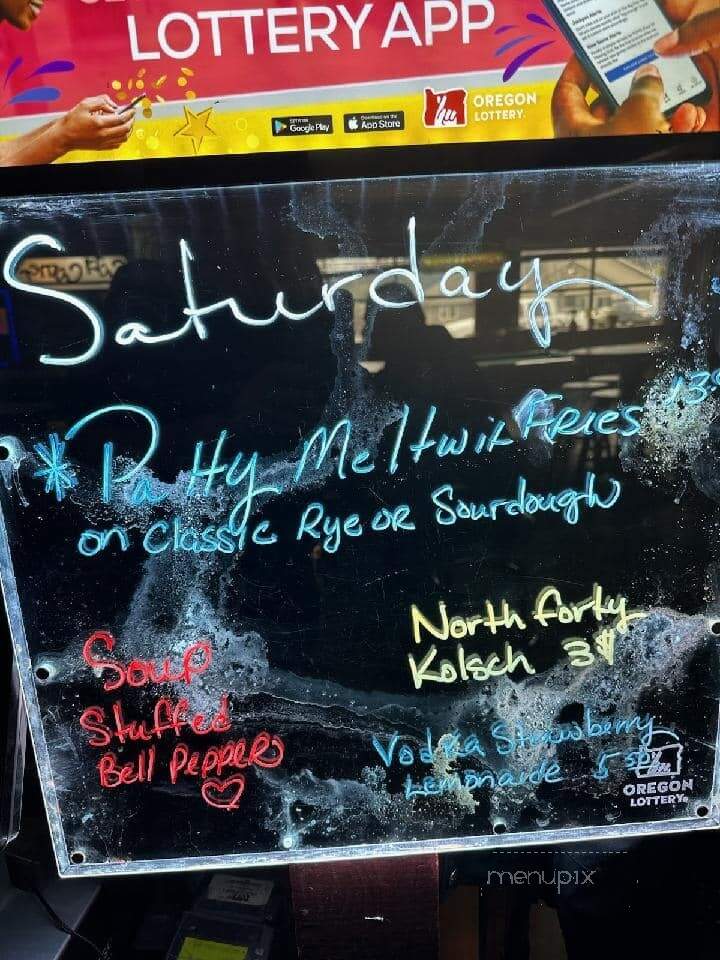 LOTTERY APP
GET IT ON
Google Play
Download on the
App Store
OREGON
LOTTERY.
Saturday
* Patty Melt wit Fries 13
on Classic Rye or Sourdough
North forty
Kolsch 3$
Soup
Stuffed
Bell Pepper
Vodka Strawberry
Lemonaide 5
OREGON
LOTTERY®
menupix